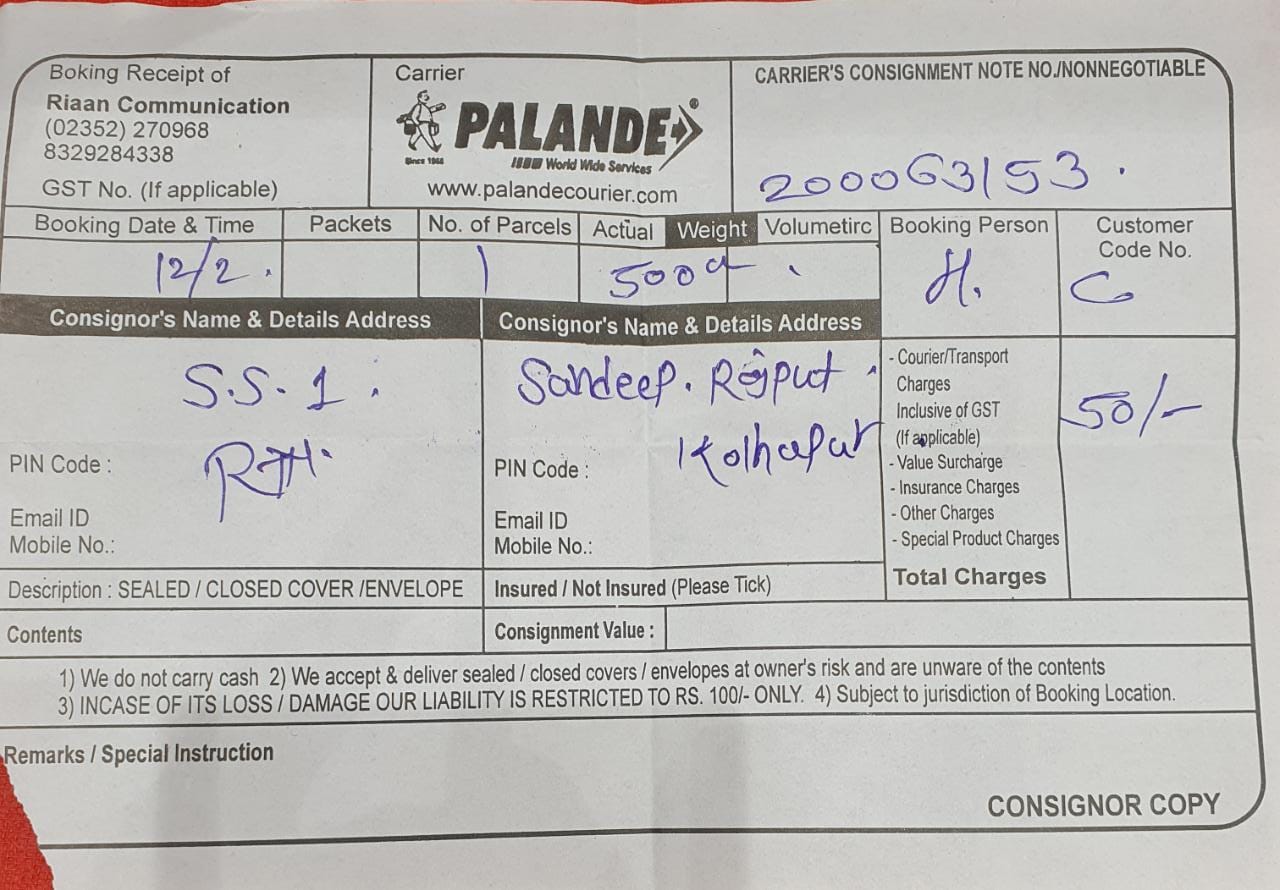 Boking Receipt of
Riaan Communication
(02352) 270968
8329284338
GST No. (If applicable)
Carrier
PALANDE®
Since 1968
World Wide Services
www.palandecourier.com
CARRIER'S CONSIGNMENT NOTE NO./NONNEGOTIABLE
200063153.
Booking Date & Time
12/2.
Packets
No. of Parcels
1
Actual Weight Volumetirc
500g
Booking Person
H.
Customer
Code No.
C
Consignor's Name & Details Address
S.S. 1.
PIN Code :
Email ID
Mobile No.:
Consignor's Name & Details Address
Sandeep. Rajput.
Kolhapur
PIN Code :
Email ID
Mobile No.:
- Courier/Transport
Charges
Inclusive of GST
(If applicable)
- Value Surcharge
- Insurance Charges
- Other Charges
- Special Product Charges
Total Charges
50/-
Description : SEALED / CLOSED COVER /ENVELOPE
Insured / Not Insured (Please Tick)
Contents
Consignment Value :
1) We do not carry cash 2) We accept & deliver sealed / closed covers / envelopes at owner's risk and are unware of the contents
3) INCASE OF ITS LOSS / DAMAGE OUR LIABILITY IS RESTRICTED TO RS. 100/- ONLY. 4) Subject to jurisdiction of Booking Location.
Remarks / Special Instruction
CONSIGNOR COPY